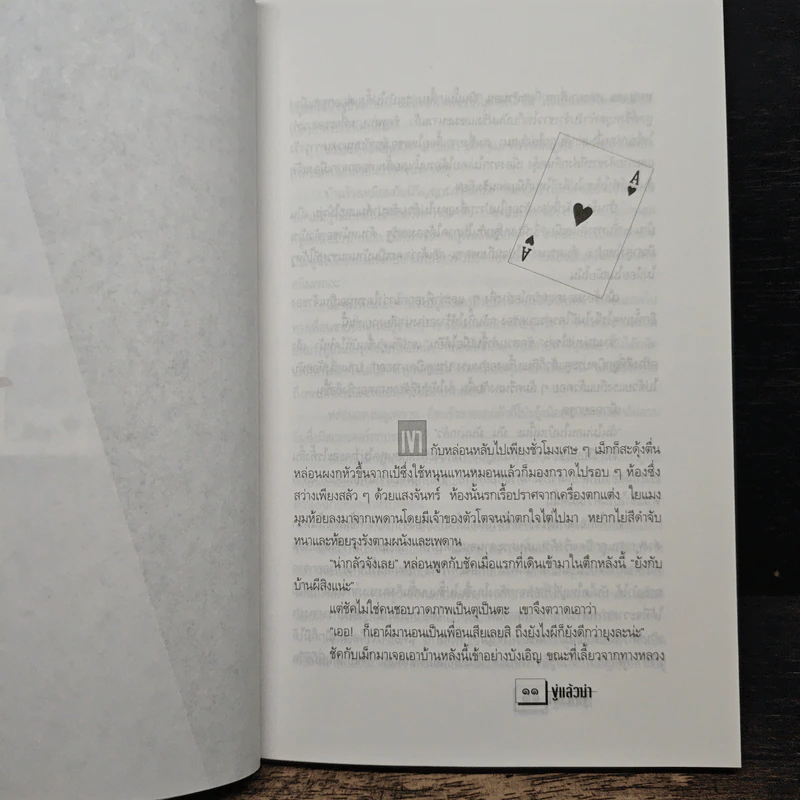 A
A
เขากับหล่อนหลับไปเพียงชั่วโมงเศษ ๆ เม็กก็สะดุ้งตื่น
หล่อนผงกหัวขึ้นจากเป้ซึ่งใช้หนุนแทนหมอนแล้วก็มองกราดไปรอบ ๆ ห้องซึ่ง
สว่างเพียงสลัว ๆ ด้วยแสงจันทร์ ห้องนั้นรกเรื้อปราศจากเครื่องตกแต่ง ใยแมง
มุมห้อยลงมาจากเพดานโดยมีเจ้าของตัวโตจนน่าตกใจไต่ไปมา หยากไย่สีดำจับ
หนาและห้อยรุงรังตามผนังและเพดาน
“น่ากลัวจังเลย” หล่อนพูดกับชัคเมื่อแรกที่เดินเข้ามาในตึกหลังนี้ “ยังกับ
บ้านผีสิงแน่ะ”
แต่ชัคไม่ใช่คนชอบวาดภาพเป็นตุเป็นตะ เขาจึงตวาดเอาว่า
“เออ! ก็เอาผีมานอนเป็นเพื่อนเสียเลยสิ ถึงยังไงผีก็ยังดีกว่ายุงละน่ะ”
ชัคกับเม็กมาเจอเอาบ้านหลังนี้เข้าอย่างบังเอิญ ขณะที่เลี้ยวจากทางหลวง
๑๑ ขู่แล้วฆ่า